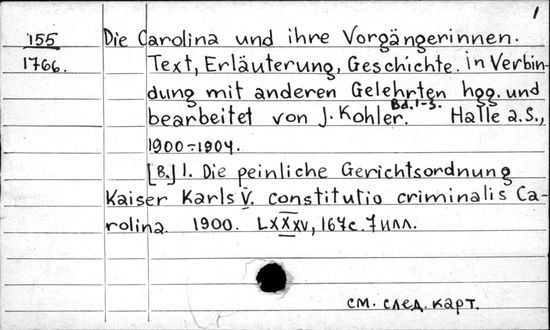 1
155
1766.
Die Carolina und ihre Vorgängerinnen.
Text, Erläuterung, Geschichte. in Verbin-
dung mit anderen Gelehrten hgg. und
bearbeitet von J. Kohler. Bd. 1-3. Halle a. S.,
1900-1904.
[B.] 1. Die peinliche Gerichtsordnung
Kaiser Karls V. constitutio criminalis Ca-
rolina. 1900. LXXXV, 167 с. 7 илл.
см. след. карт.